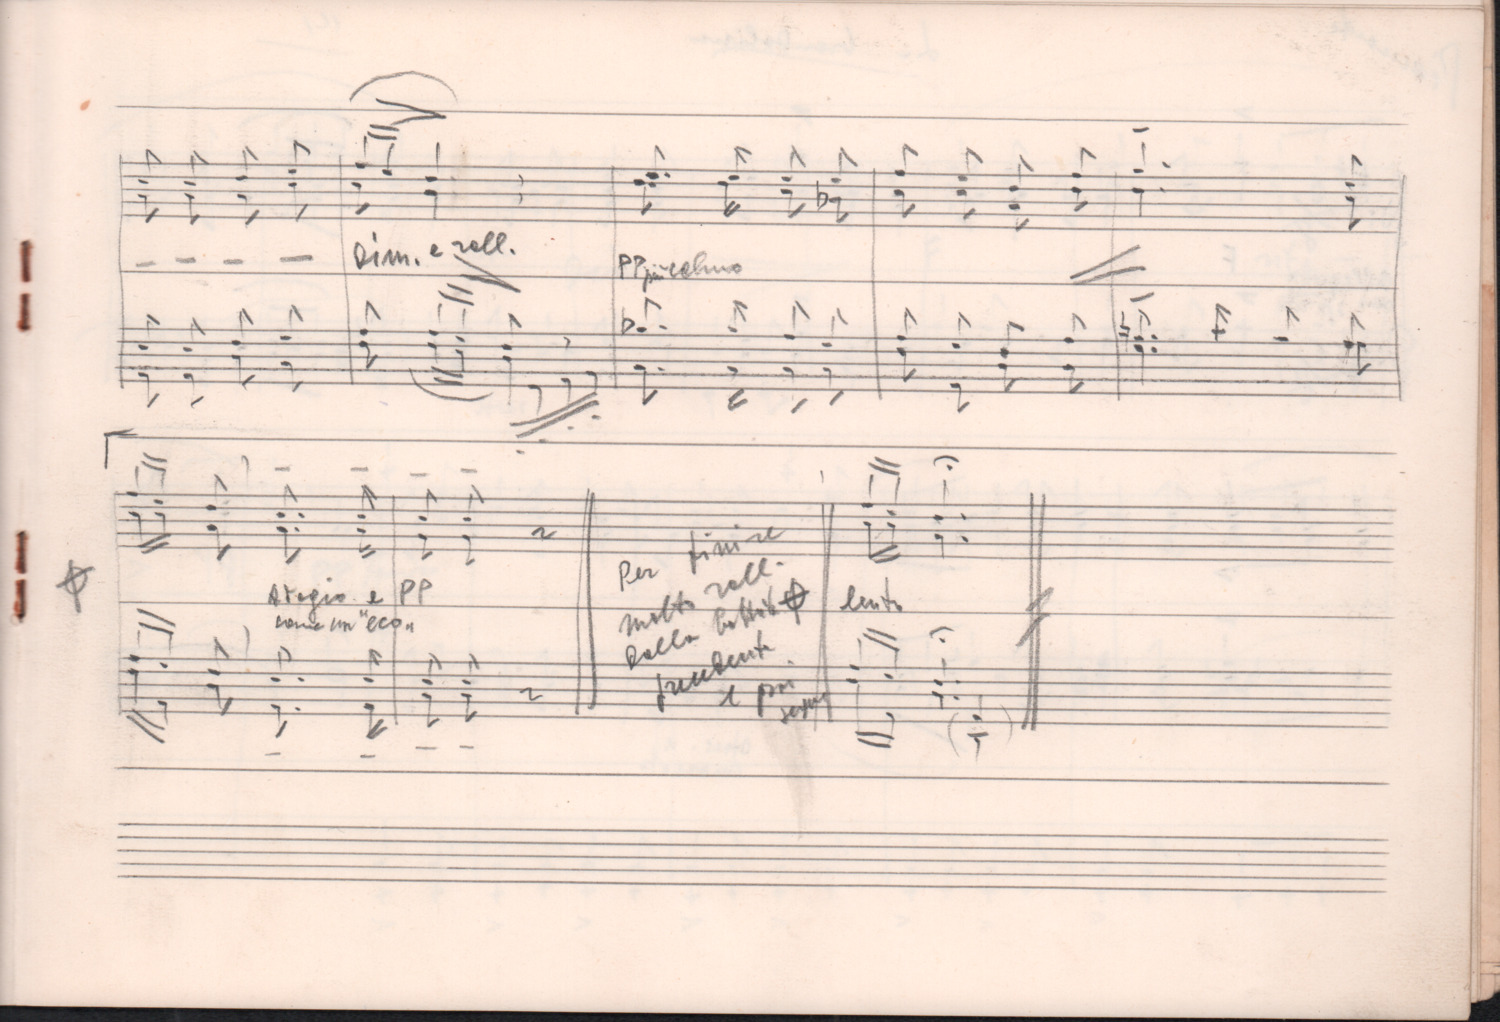 Dim. e rall.
PP più calmo
Adagio e PP
come un "eco"
Per finire
molto rall.
dalla battuta
precedente
e poi
segue
lento